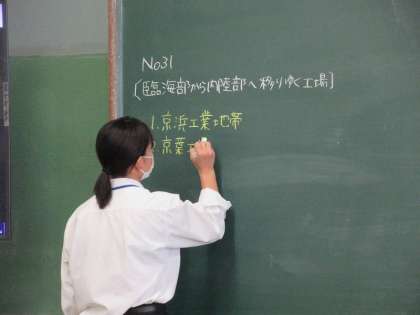 No31
〔臨海部から内陸部へ移りゆく工場〕
1. 京浜工業地帯
2. 京葉工